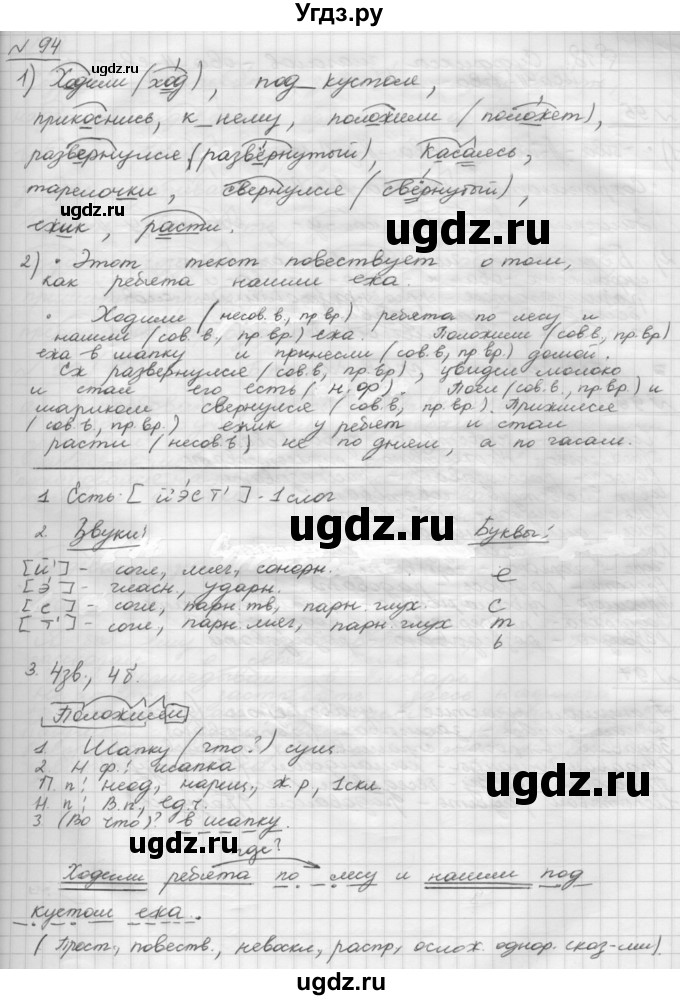 Угдз.ру
№ 94
1) Ходили (ход), под_кустом,
прикоснись, к_нему, положили (положет),
развернулся (развёрнутый), касаясь,
тарелочки, свернулся (свёрнутый),
ежик, расти.
2) • Этот текст повествует о том,
как ребята нашли ежа.
• Ходили (несов.в, пр.вр.) ребята по лесу и
нашли (сов.в, пр.вр.) ежа. Положили (сов.в, пр.вр)
ежа в шапку и принесли (сов.в, пр.вр.) домой.
Ёж развернулся (сов.в, пр.вр), увидел молоко
и стал его есть (н.ф). Поел (сов.в., пр.вр) и
шариком свернулся (сов.в, пр.вр). Прижился
(сов.в, пр.вр.) ежик у ребят и стал
расти (несов.в) не по дням, а по часам.
1 Есть - [й'эст'] - 1 слог
2. Звуки: Буквы:
[й'] - согл, мяг, сонорн. е
[э́] - гласн., ударн.
[с] - согл, парн.тв, парн.глух. с
[т'] - согл, парн.мяг, парн.глух т
ь
3. 4зв., 4б.
Положили
1 Шапку (что?) сущ
2 Н.ф.: шапка
П.п: неод, нариц., ж.р, 1скл
Н.п: В.п, ед.ч.
3 (Во что)? в шапку.
где?
Ходили ребята по лесу и нашли под
кустом ежа.
(Прост., повеств., невоскл, распр, ослож. однор. сказ-ми).
ugdz.ru
ugdz.ru
ugdz.ru
ugdz.ru
ugdz.ru
ugdz.ru
ugdz.ru
ugdz.ru
ugdz.ru